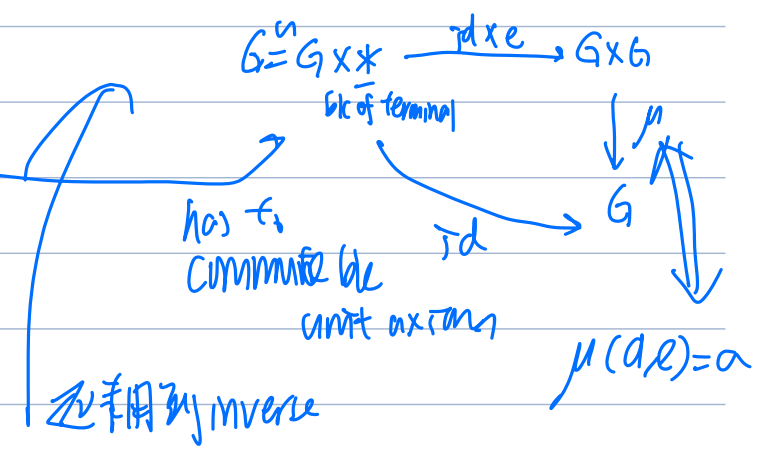 G ≅ G × * id × e G × G
b/c of terminal
μ
G
id
has to
commute b/c
unit axioms
μ(a,e)=a
还未用到 inverse